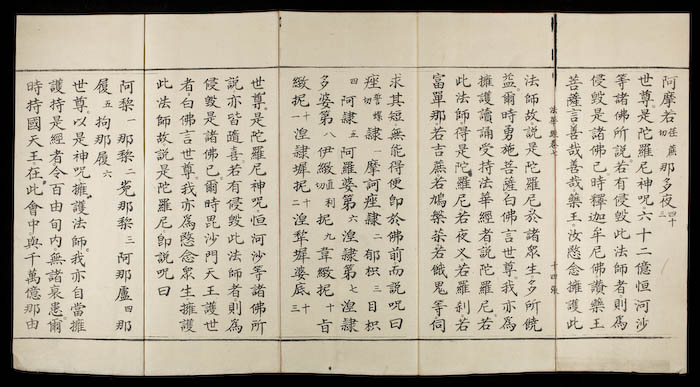 阿摩若荏蔗切那多夜四十三
世尊是陀羅尼神呪六十二億恒河沙
等諸佛所說若有侵毀此法師者則為
侵毀是諸佛已時釋迦牟尼佛讚藥王
菩薩言善哉善哉藥王汝愍念擁護此
法華經卷七 十四張
法師故說是陀羅尼於諸眾生多所饒
益爾時勇施菩薩白佛言世尊我亦為
擁護讀誦受持法華經者說陀羅尼若
此法師得是陀羅尼若夜叉若羅刹若
富單那若吉蔗若鳩槃荼若餓鬼等伺
求其短無能得便即於佛前而說呪曰
痤誓螺切隸一摩訶痤隸二郁枳三目枳
四阿隸五阿羅婆第六涅隸第七涅隸
多婆第八伊緻直利切抳九韋緻抳十旨
緻抳十一涅隸墀抳十二涅犂墀婆底十三
世尊是陀羅尼神呪恒河沙等諸佛所
說亦皆隨喜若有侵毀此法師者則為
侵毀是諸佛已爾時毗沙門天王護世
者白佛言世尊我亦為愍念眾生擁護
此法師故說是陀羅尼即說呪曰
阿棃一那棃二㝹那棃三阿那盧四那
履五拘那履六
世尊以是神呪擁護法師我亦自當擁
護持是經者令百由旬內無諸衰患爾
時持國天王在此會中與千萬億那由